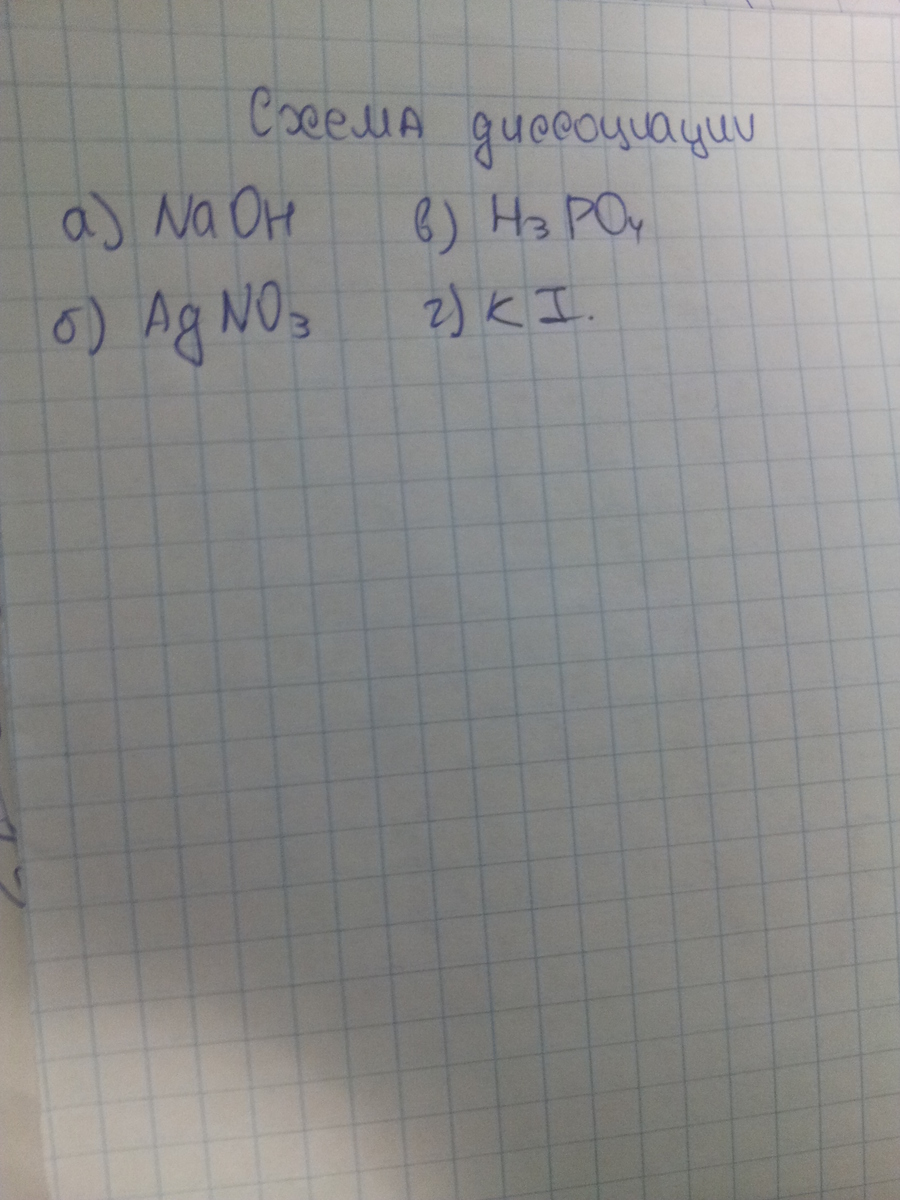 Схема диссоциации
а) NaOH в) H₃PO₄
б) AgNO₃ г) KI.